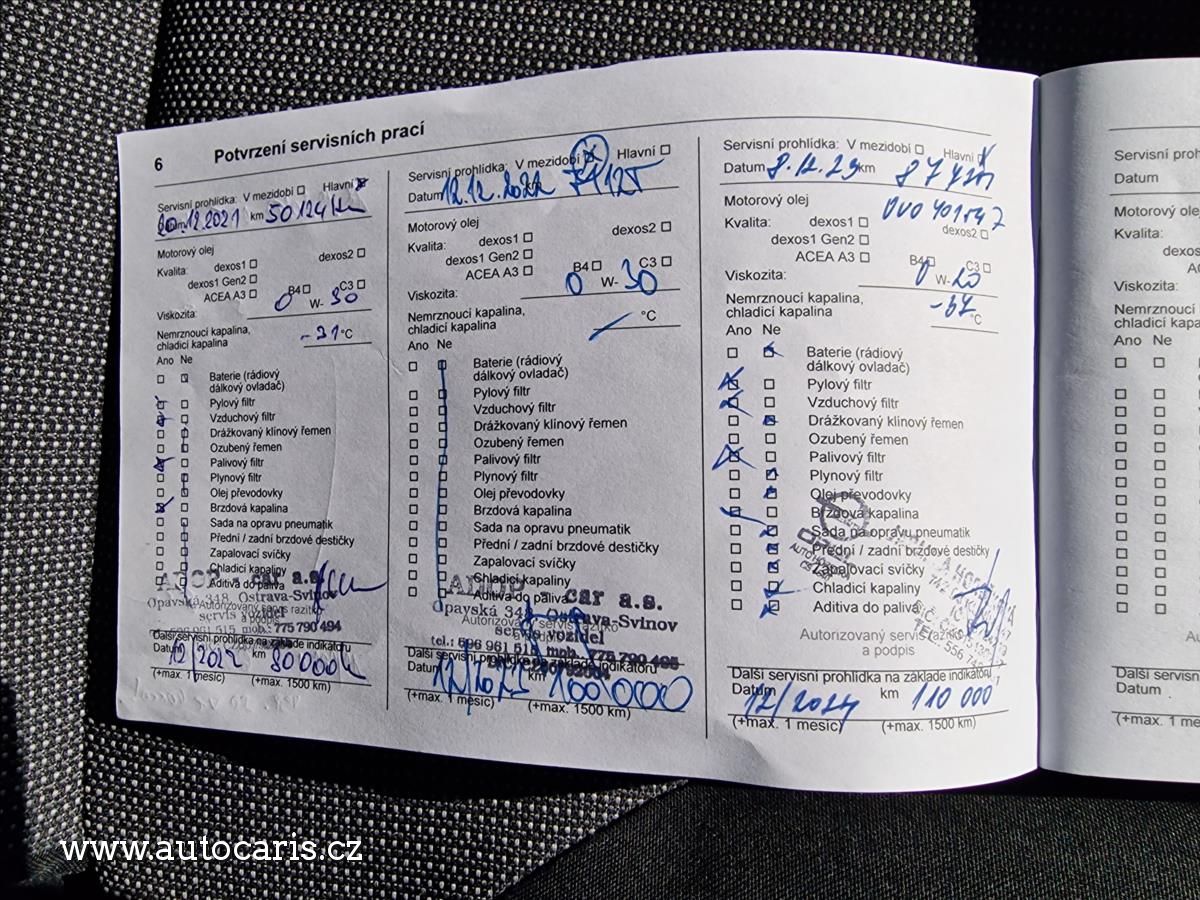 6 Potvrzení servisních prací
Servisní prohlídka: V mezidobí Hlavní
20.12.2021 km 50124 km
Motorový olej
Kvalita: dexos1 dexos2
dexos1 Gen2
ACEA A3 B4 C3
Viskozita: 0 W- 30
Nemrznoucí kapalina,
chladicí kapalina -31 °C
Ano Ne
Baterie (rádiový
dálkový ovladač)
Pylový filtr
Vzduchový filtr
Drážkovaný klínový řemen
Ozubený řemen
Palivový filtr
Plynový filtr
Olej převodovky
Brzdová kapalina
Sada na opravu pneumatik
Přední / zadní brzdové destičky
Zapalovací svíčky
Chladicí kapaliny
Aditiva do paliva
car a.s.
Opavská 348, Ostrava-Svinov
Autorizovaný servis razítko
servis vozidel
a podpis
596 961 515 mob.: 775 790 494
Další servisní prohlídka na základě indikátoru
Datum 12/2022 km 80000
(+max. 1 měsíc) (+max. 1500 km)
Servisní prohlídka: V mezidobí Hlavní
Datum 12.12.2022
Motorový olej
Kvalita: dexos1 dexos2
dexos1 Gen2
ACEA A3 B4 C3
Viskozita: 0 W- 30
Nemrznoucí kapalina,
chladicí kapalina °C
Ano Ne
Baterie (rádiový
dálkový ovladač)
Pylový filtr
Vzduchový filtr
Drážkovaný klínový řemen
Ozubený řemen
Palivový filtr
Plynový filtr
Olej převodovky
Brzdová kapalina
Sada na opravu pneumatik
Přední / zadní brzdové destičky
Zapalovací svíčky
Chladicí kapaliny
Aditiva do paliva
car a.s.
Opavská 348, Ostrava-Svinov
Autorizovaný servis razítko
servis vozidel
tel.: 596 961 515, mob. 775 790 495
Další servisní prohlídka na základě indikátoru
Datum 12/2023 km 100000
(+max. 1 měsíc) (+max. 1500 km)
Servisní prohlídka: V mezidobí Hlavní
Datum 8.12.23 km
Motorový olej
Kvalita: dexos1 dexos2
dexos1 Gen2
ACEA A3 B4 C3
Viskozita: 0 W- 20
Nemrznoucí kapalina,
chladicí kapalina -37 °C
Ano Ne
Baterie (rádiový
dálkový ovladač)
Pylový filtr
Vzduchový filtr
Drážkovaný klínový řemen
Ozubený řemen
Palivový filtr
Plynový filtr
Olej převodovky
Brzdová kapalina
Sada na opravu pneumatik
Přední / zadní brzdové destičky
Zapalovací svíčky
Chladicí kapaliny
Aditiva do paliva
Autorizovaný servis razítko
a podpis
Další servisní prohlídka na základě indikátoru
Datum 12/2024 km 110 000
(+max. 1 měsíc) (+max. 1500 km)
Servisní proh
Datum
Motorový olej
Kvalita:
Viskozita:
Nemrznoucí
chladicí kapal
Ano Ne
Další servisn
Datum
(+max. 1 mě
www.autocaris.cz